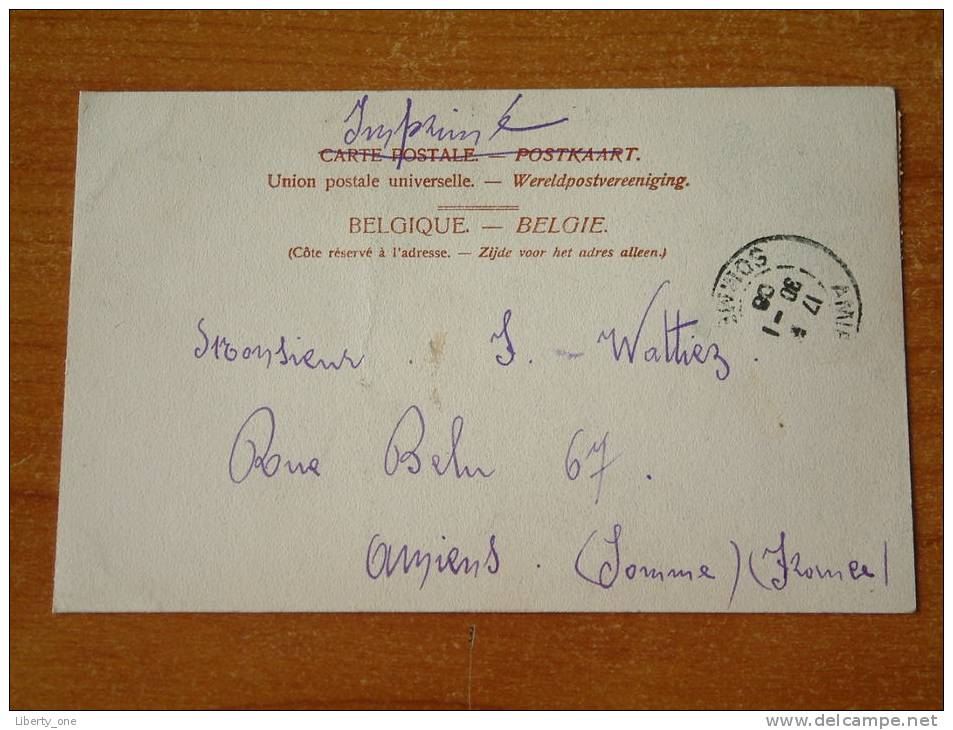 Imprimé
CARTE POSTALE. — POSTKAART.
Union postale universelle. — Wereldpostvereeniging.
BELGIQUE. — BELGIE.
(Côte réservé à l'adresse. — Zijde voor het adres alleen.)
AMIE
SOMM
17
30 - 1
08
Monsieur . J. - Wattiez .
Rue Belu 67 .
Amiens . (Somme) (France)
Liberty_one
www.delcampe.net